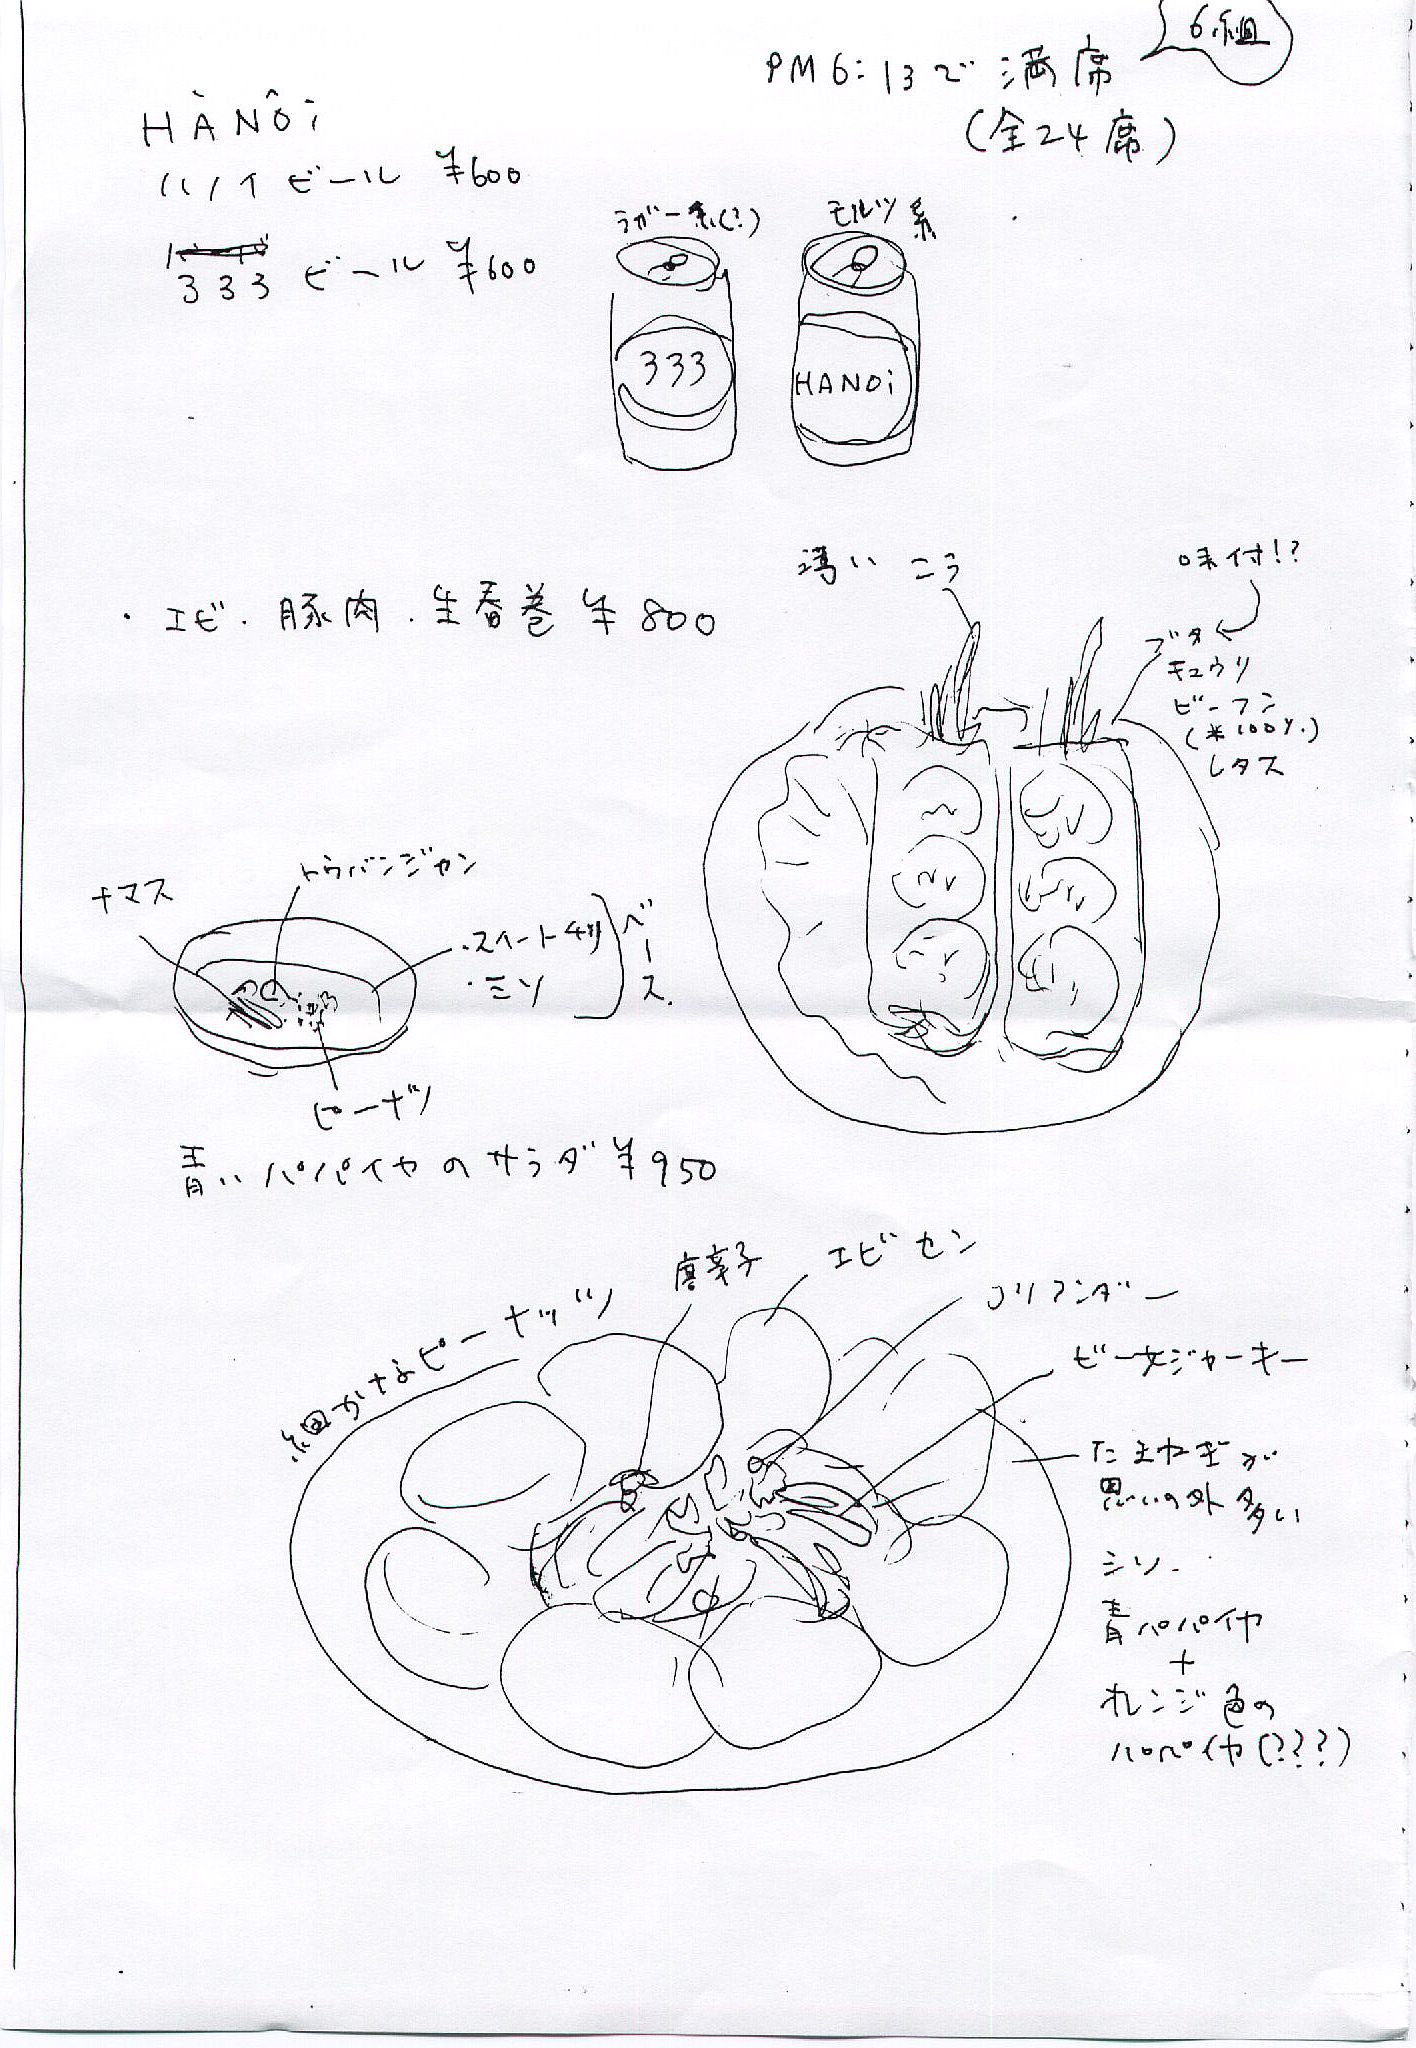 6組
PM6:13で満席
(全24席)
HÀNÔi
ハノイビール ¥600
333 ビール ¥600
ラガー系(?)
モルツ系
333
HANOi
・エビ・豚肉・生春巻 ¥800
味付!?
ブタ
キュウリ
ビーフン
(米100%)
レタス
ナマス
トウバンジャン
・スイートチリ
・ミソ
ベース
ピーナツ
青いパパイヤのサラダ ¥950
細かなピーナッツ
唐辛子
エビセン
コリアンダー
ビーフジャーキー
たまねぎが
思いの外多い
シソ
青パパイヤ
+
オレンジ色の
パパイヤ(???)